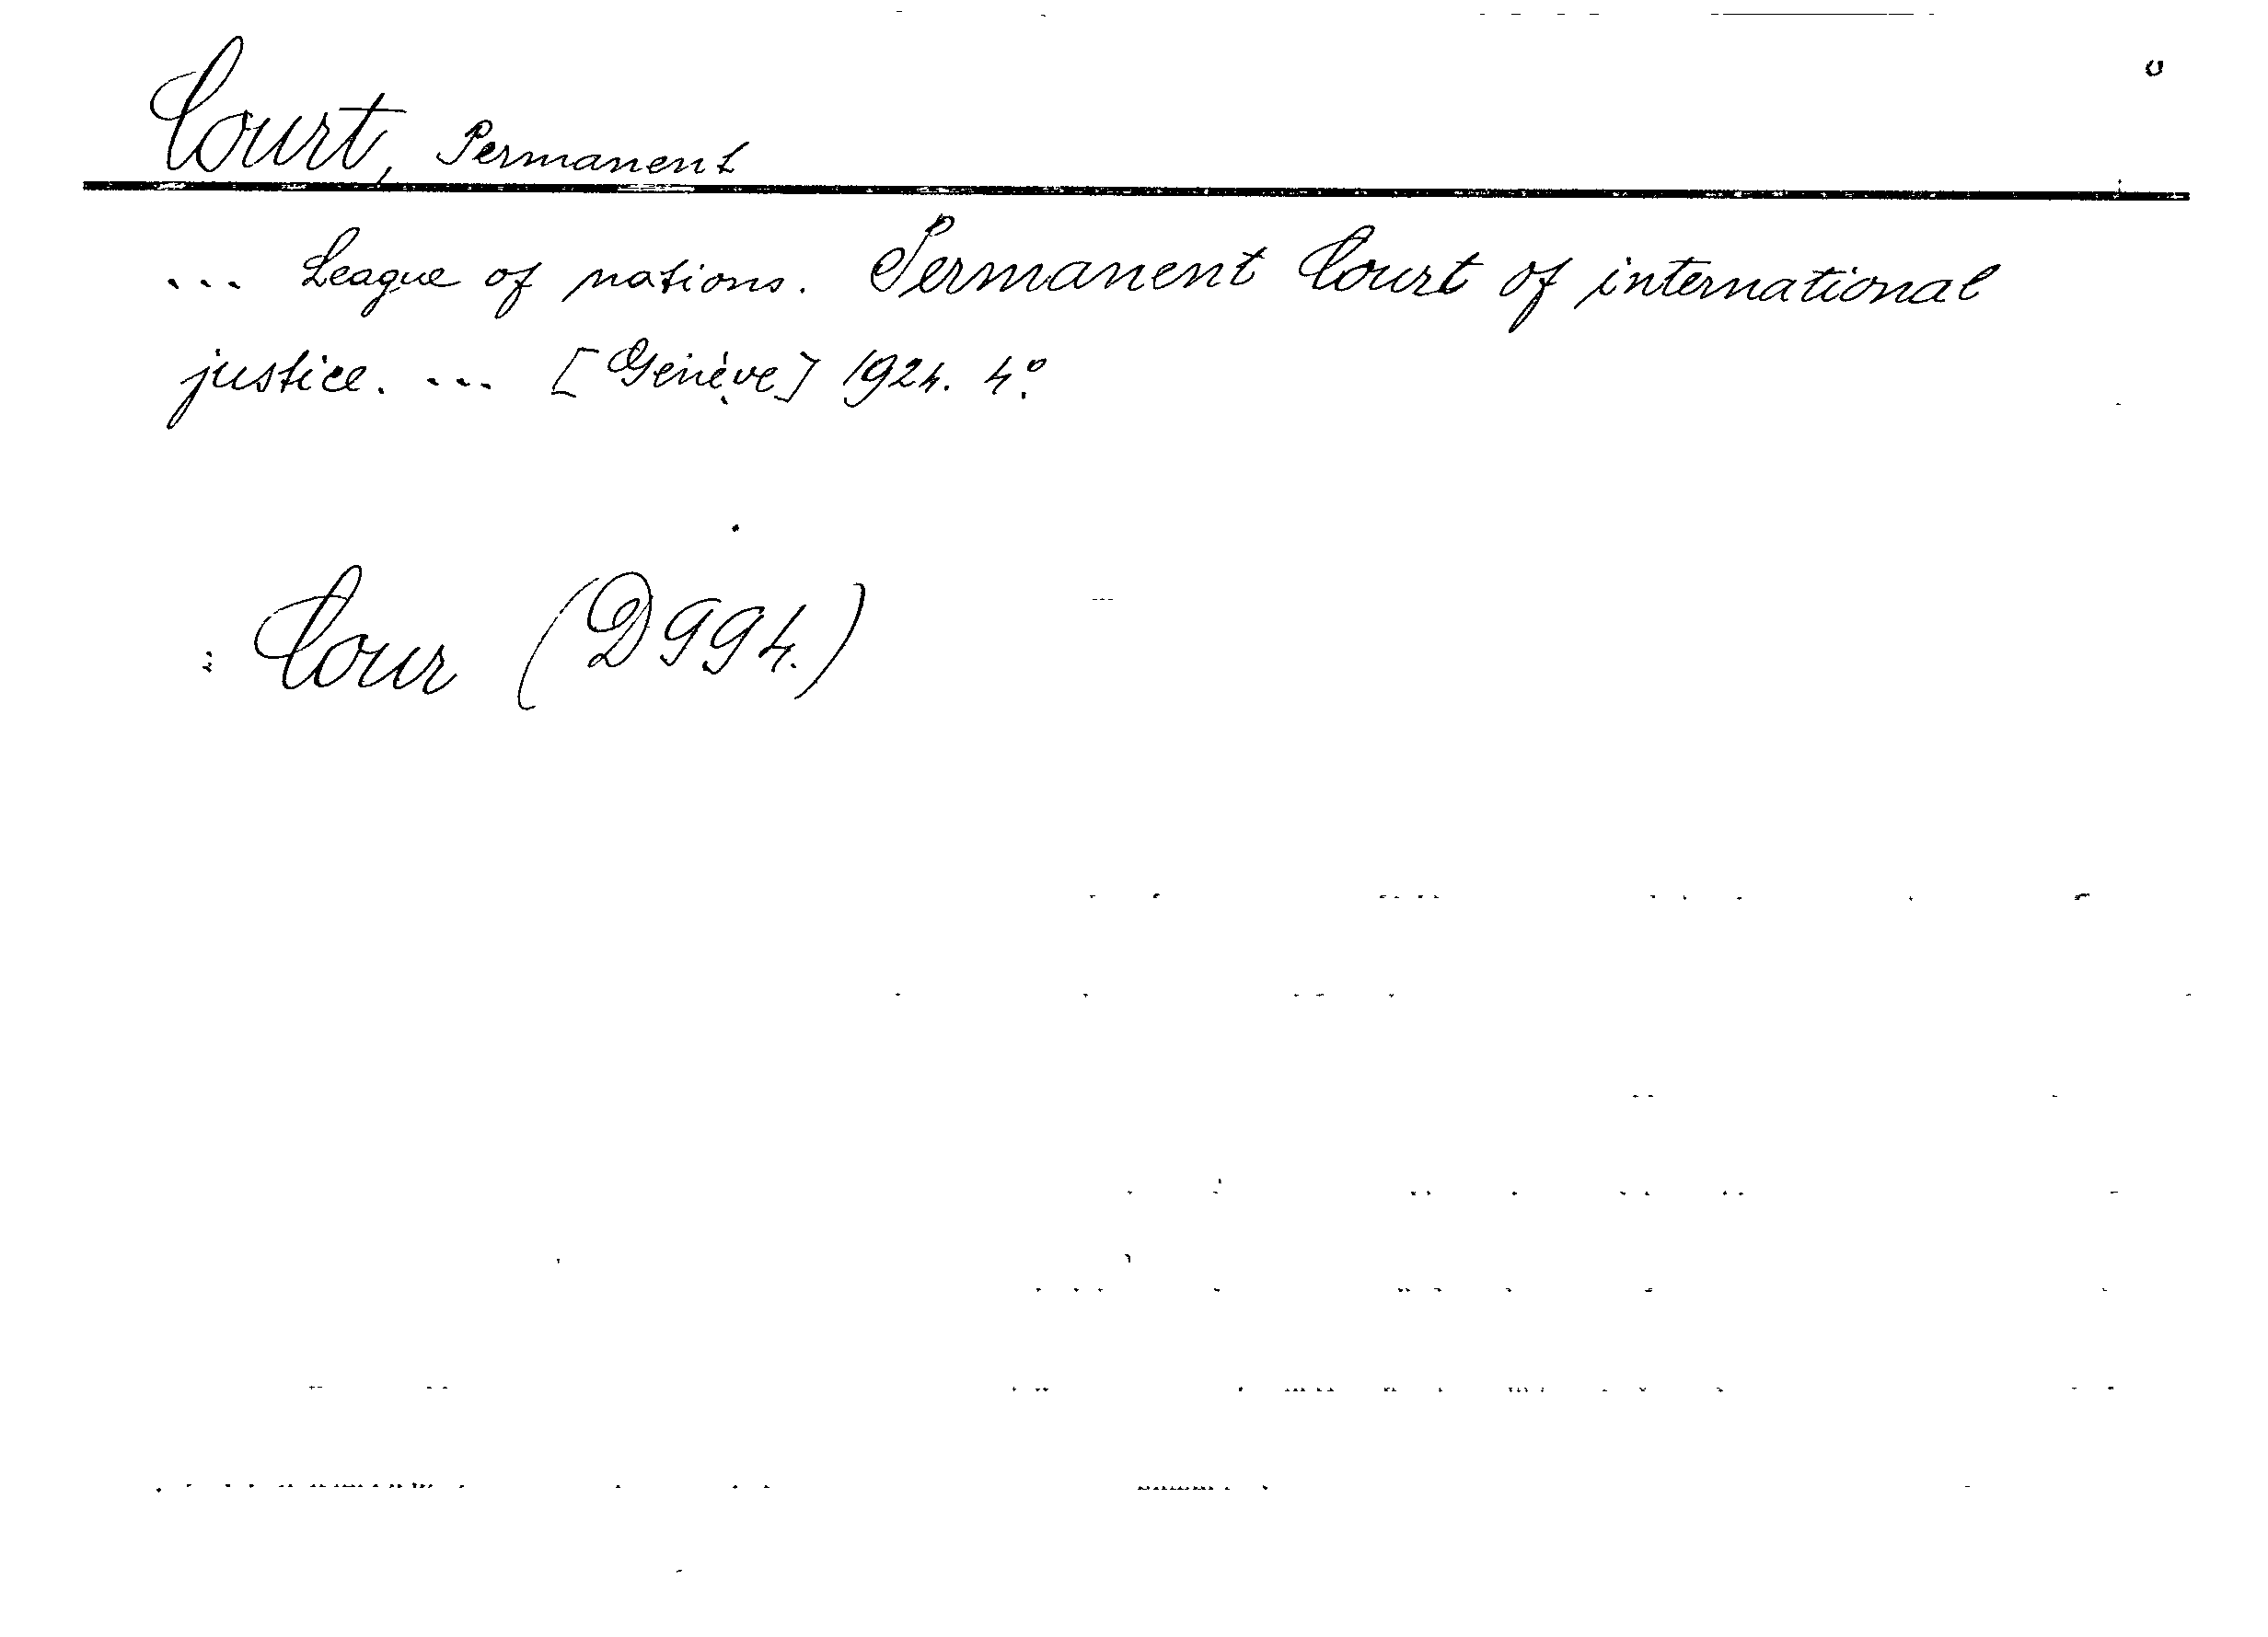 Court, Permanent
... League of nations. Permanent Court of international
justice. ... [Genève] 1924. 4°.
: Cour (D994.)